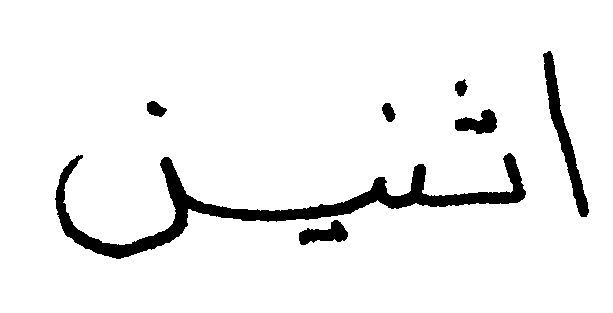 اثنين